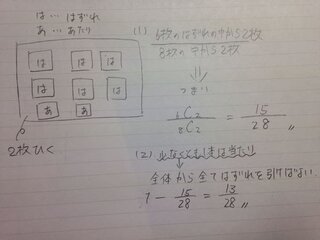 は … はずれ
あ … あたり
は は は
は は は
あ あ
2枚ひく
(1) 6枚のはずれの中から2枚
8枚の中から2枚
つまり
₆C₂ / ₈C₂ = 15/28 〃
(2) 少なくとも1本は当たり
全体から全てはずれを引けばよい
1 - 15/28 = 13/28 〃